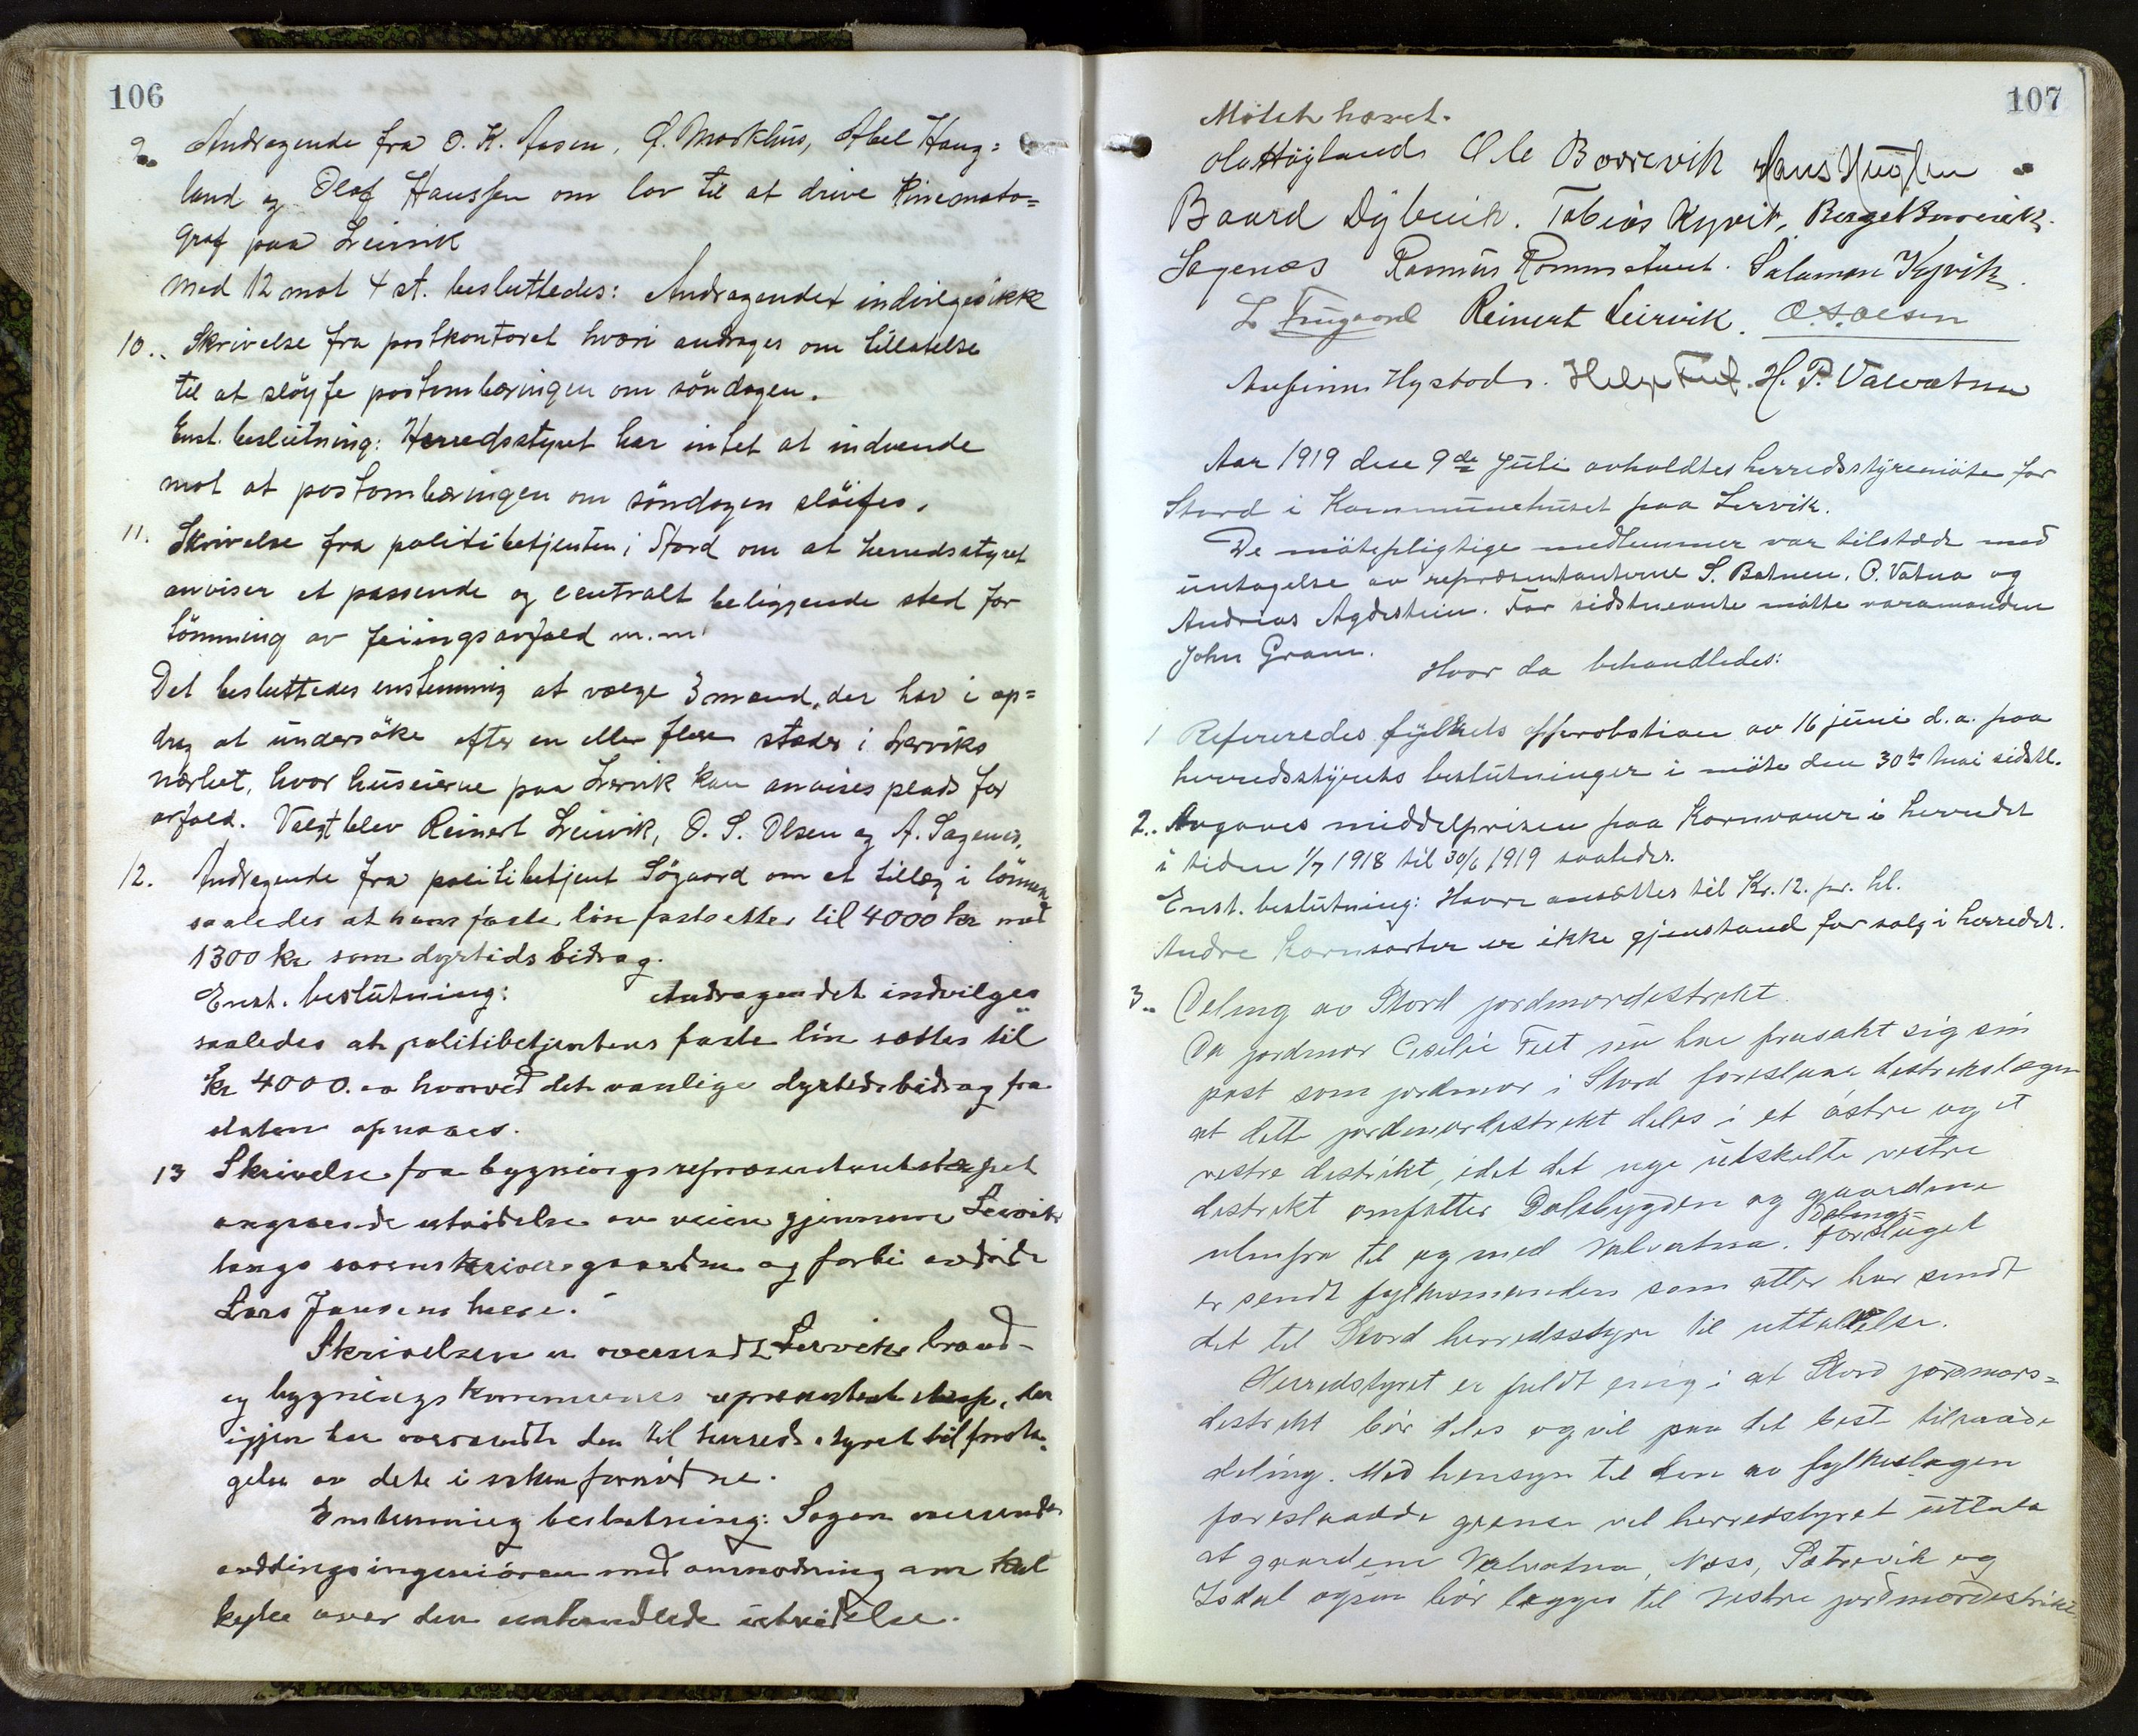 106
9. Andragende fra O. K. Aasen, Q. Markhus, Abel Haug=
land og Olaf Hanssen om lov til at drive Kinemato=
graf paa Leirvik
Med 12 mot 4 st. besluttedes: Andragendet indvilges ikke
10. Skrivelse fra postkontoret hvori andrages om tillatelse
til at sløyfe postombæringen om söndagen.
Enst. beslutning: Herredsstyret har intet at indvende
mot at postombæringen om söndagen slöifes.
11. Skrivelse fra politibetjenten i Stord om at herredsstyret
anviser et passende og centralt beliggende sted for
tömming av feiingsavfald m.m.
Det besluttedes enstemmig at vælge 3 mænd, der har i op=
drag at undersöke efter en eller flere steder i Lerviks
nærhet, hvor huseierne paa Lervik kan anvises plads for
avfald. Valgt blev Reinert Leirvik, O. S. Olsen og A. Sagenes.
12. Andragende fra politibetjent Sögaard om et tillæg i lönnen
saaledes at hans faste lön fastsættes til 4000 kr med
1300 kr som dyrtidsbidrag.
Enst. beslutning: Andragendet indvilges
saaledes at politibetjentens faste lön sættes til
kr 4000.00 hvorved det vanlige dyrtidsbidrag fra
staten opnaaes.
13 Skrivelse fra bygningsrepræsentantskapet
angaaende utvidelse av veien gjennem Leirvik
langs sorenskrivergaarden og forbi avdöde
Lars Jansens huse.
Skrivelsen er oversendt Lerviks brand-
og bygningskommunes repræsentantskap, der
igjen har oversendt den til herredsstyret til foreta-
gelse av dete i saken fornödne.
Enstemmig beslutning: Sagen oversendes
avdelingsingeniören med anmodning om
over den omhandlede utvidelse.
107
Mötet hævet.
Ola Höyland Ole Borrevik Hans
Baard Dybvik. Tobias Kyvik, Berge Borrevik.
Sagenes Rasmus Rommetveit. Salamon Kyvik.
L Reinert Leirvik. O. S. Olsen
Anfinn Hystad. Helge H. P. Valvatna
Aar 1919 den 9de Juli avholdtes herredsstyremöte for
Stord i Kommunehuset paa Lervik.
De mötepligtige medlemmer var tilstede med
untagelse av repræsentanterne S. Batnen. O. Vatna og
Andreas Agdestein. For sidstnevnte mötte varamanden
John Gram.
Hvor da behandledes:
1 Refereredes fylkets approbation av 16 juni d.a. paa
herredsstyrets beslutninger i möte den 30te mai sidstl.
2. Avgaves middelprisen paa Kornvarer i herredet
i tiden 1/7 1918 til 30/6 1919 saaledes.
Enst. beslutning: Havre ansættes til Kr. 12. pr. hl.
Andre kornsorter er ikke gjenstand for salg i herredet.
3. Deling av Stord jordmordistrikt.
Da jordmor Cecilie Feet nu har frasakt sig sin
post som jordmor i Stord foreslaar distrikslægen
at dette jordmordistrikt deles i et östre og et
vestre distrikt, idet det nye utskilte vestre
distrikt omfatter Dalsbygden og gaardene
utenfra til og med Valvatna. Delings=
forslaget
er sendt fylkesmanden som atter har sendt
det til Stord herredsstyre til uttallelse.
Herredstyret er fuldt enig i at Stord jordmors=
distrikt bör deles og vil paa det beste tilraade
deling. Med hensyn til den av fylkeslægen
foreslaadde grense vil herredstyret uttala
at gaardene Valvatna, Næss, Sætrevik og
Isdal ogsaa bör lægges til vestre jordmordistrikt